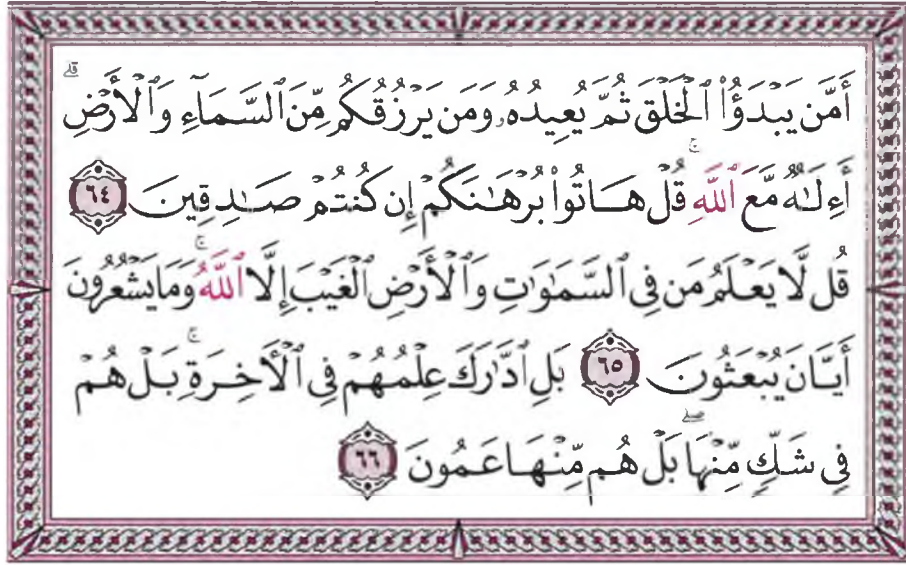 أَمَّن يَبْدَؤُا۟ ٱلْخَلْقَ ثُمَّ يُعِيدُهُۥ وَمَن يَرْزُقُكُم مِّنَ ٱلسَّمَآءِ وَٱلْأَرْضِ ۗ
أَءِلَٰهٌ مَّعَ ٱللَّهِ ۚ قُلْ هَاتُوا۟ بُرْهَٰنَكُمْ إِن كُنتُمْ صَٰدِقِينَ ٦٤
قُل لَّا يَعْلَمُ مَن فِى ٱلسَّمَٰوَٰتِ وَٱلْأَرْضِ ٱلْغَيْبَ إِلَّا ٱللَّهُ ۚ وَمَا يَشْعُرُونَ
أَيَّانَ يُبْعَثُونَ ٦٥ بَلِ ٱدَّٰرَكَ عِلْمُهُمْ فِى ٱلْءَاخِرَةِ ۚ بَلْ هُمْ
فِى شَكٍّ مِّنْهَا ۖ بَلْ هُم مِّنْهَا عَمُونَ ٦٦